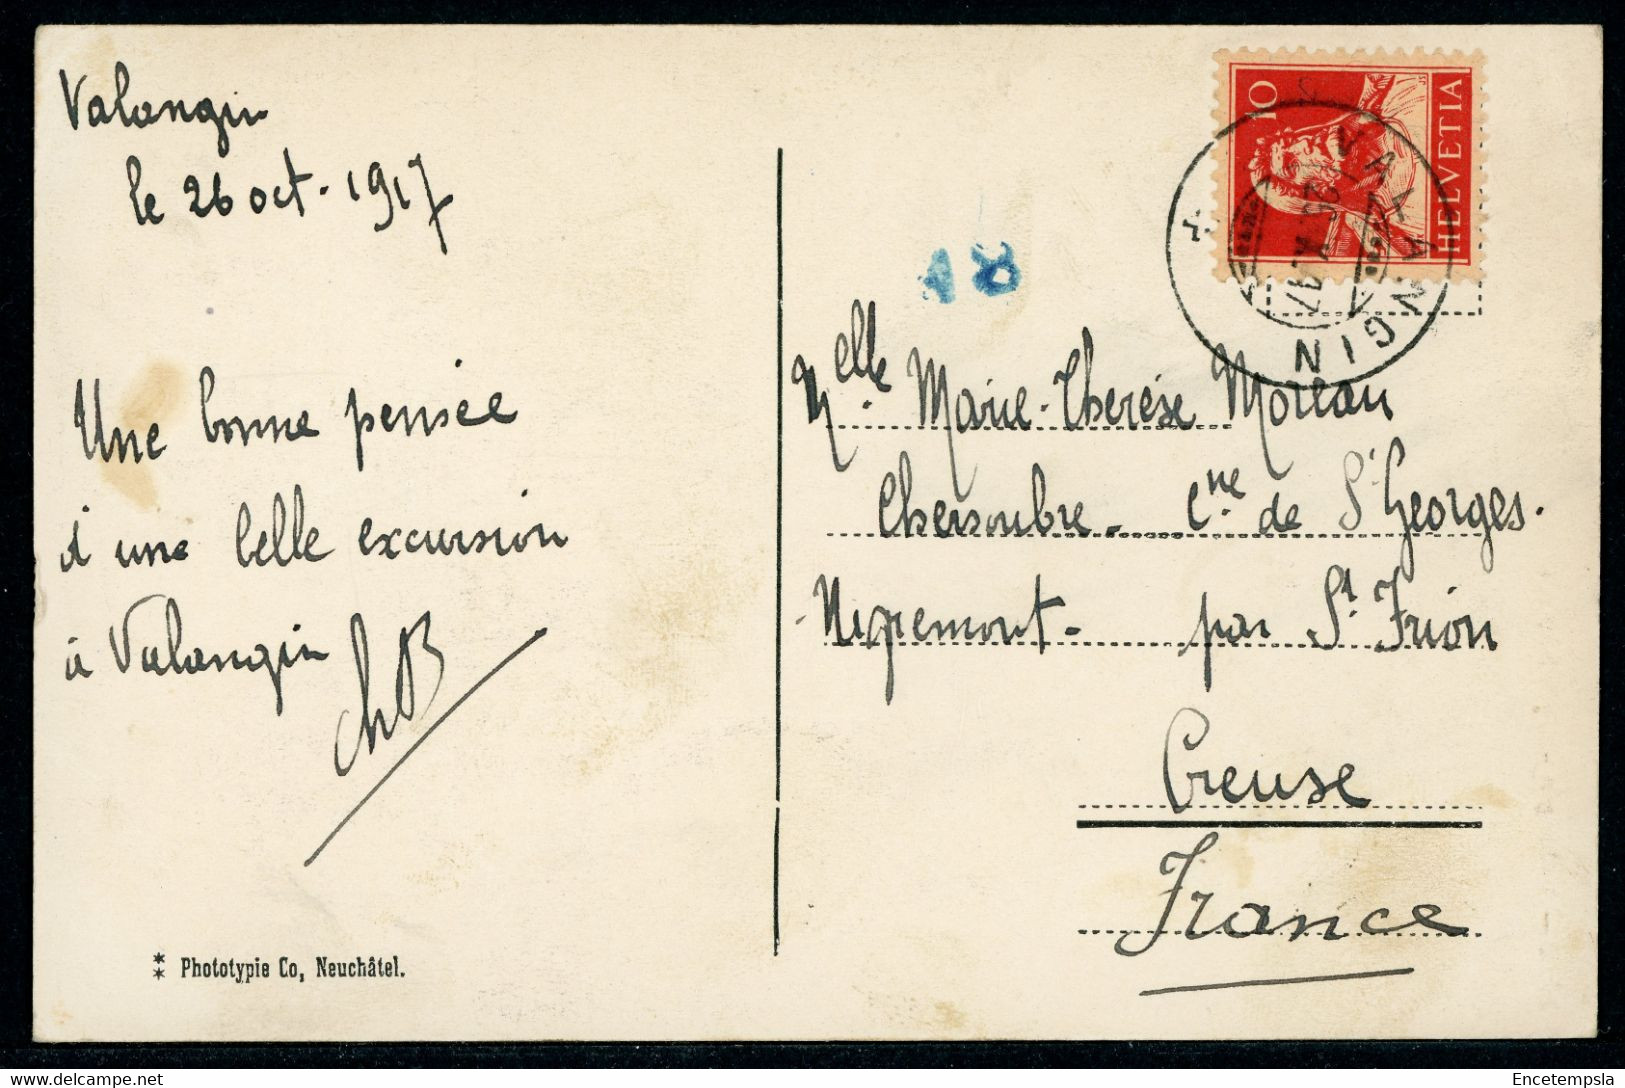 Valangin
le 26 oct. 1917
Une bonne pensée
d'une belle excursion
à Valangin
ChB
Phototypie Co, Neuchâtel.
10
HELVETIA
VALANGIN
18
Melle Marie-Therése Moreau
Chersoubre - Cne de St Georges.
Nigremont - par St Frion
Creuse
France
Encetempsla
www.delcampe.net